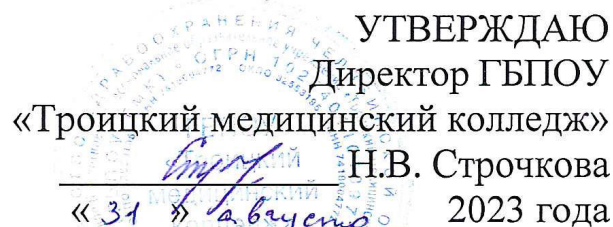 УТВЕРЖДАЮ
Директор ГБПОУ
«Троицкий медицинский колледж»
Н.В. Строчкова
« 31 » августа 2023 года